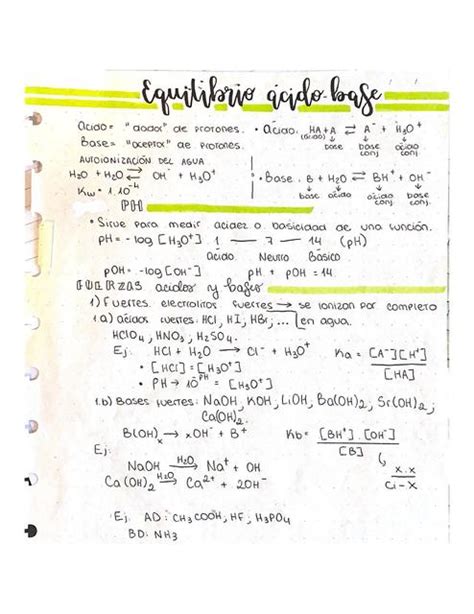 Equilibrio ácido-base
Ácido = "dador" de protones. • Ácido. HA + A ⇄ A⁻ + H₃O⁺
(ácido) base base conj ácido conj.
Base = "aceptor" de protones.
AUTOIONIZACIÓN DEL AGUA
H₂O + H₂O ⇄ OH⁻ + H₃O⁺ • Base. B + H₂O ⇄ BH⁺ + OH⁻
base ácido ácido conj. base conj.
Kw = 1.10⁻⁴
PH
• Sirve para medir acidez o basicidad de una función.
pH = -log [H₃O⁺] 1 — 7 — 14 (pH)
Ácido Neutro Básico
pOH = -log [OH⁻] pH + pOH = 14.
FUERZAS ácidos y bases
1) Fuertes. electrolitos fuertes → se ionizan por completo
1.a) ácidos fuertes: HCl, HI, HBr, ... en agua.
HClO₄, HNO₃, H₂SO₄.
Ej. HCl + H₂O → Cl⁻ + H₃O⁺ Ka = [A⁻][H⁺]
[HA]
• [HCl] = [H₃O⁺]
• PH → 10⁻ᵖᴴ = [H₃O⁺]
1.b) Bases fuertes: NaOH, KOH, LiOH, Ba(OH)₂, Sr(OH)₂,
Ca(OH)₂.
B(OH)ₓ → xOH⁻ + B⁺ Kb = [BH⁺].[OH⁻]
[B]
Ej:
NaOH H₂O→ Na⁺ + OH x.x
Ca(OH)₂ H₂O→ Ca²⁺ + 2OH⁻ Ci-x
Ej. AD: CH₃COOH, HF, H₃PO₄
BD: NH₃